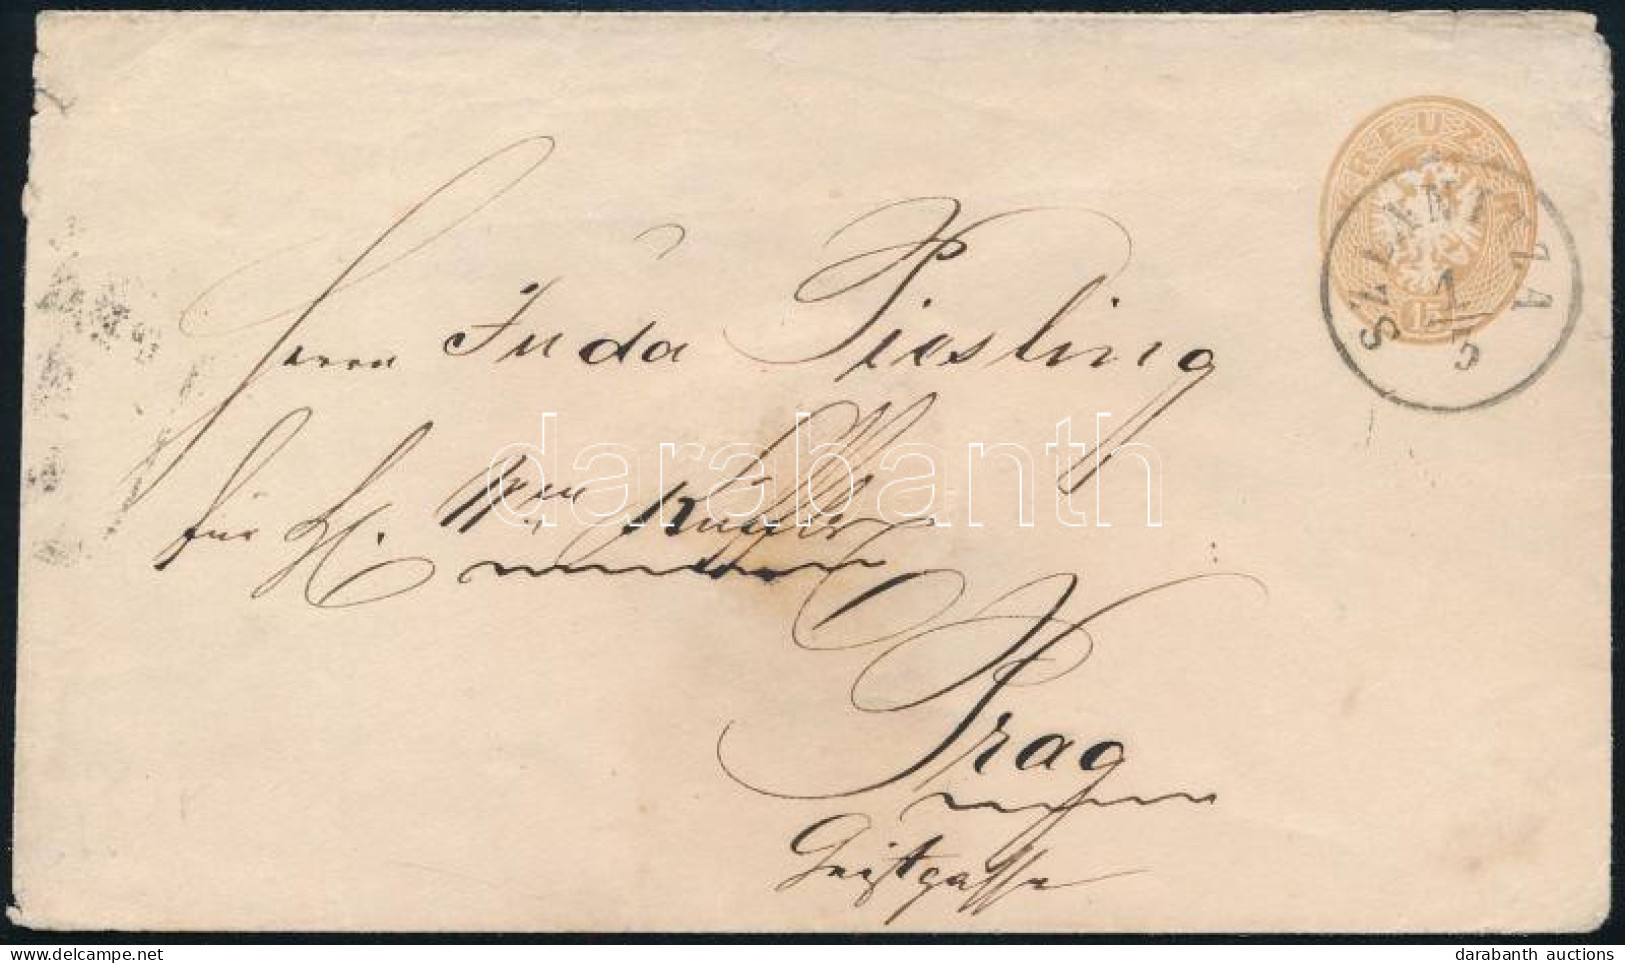 KREUZER
15
SZLANICZA
1/5
Herrn Juda Piesling
für H. Wwe Kuffler
Prag
Geistgasse
darabanth
delcampe.net
darabanth auctions